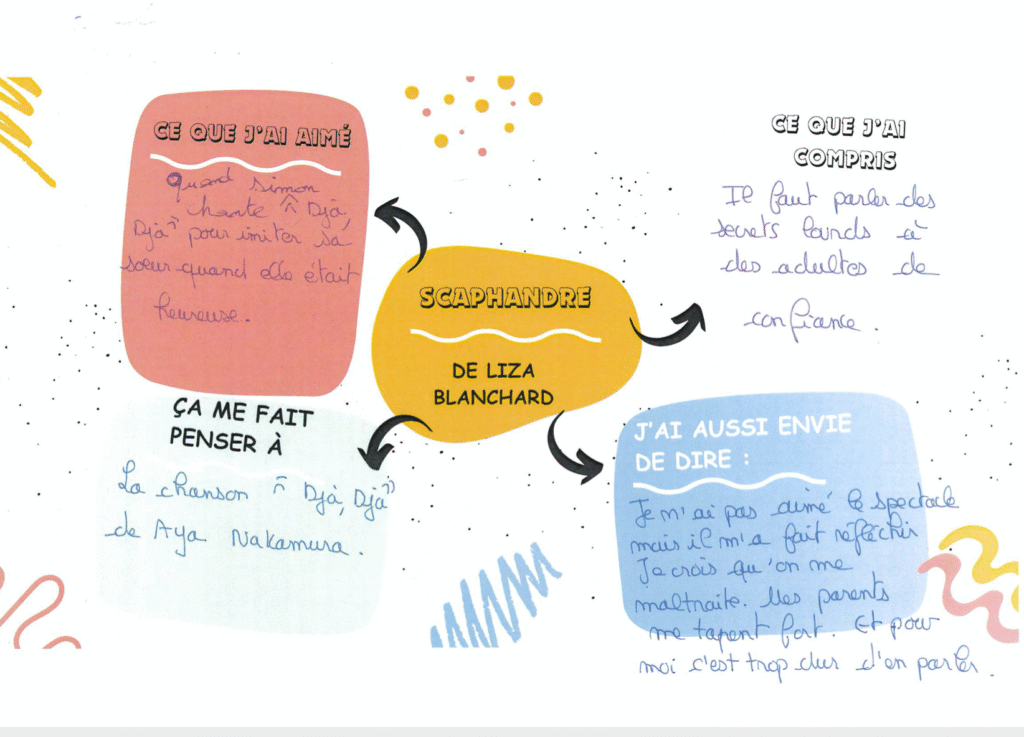 CE QUE J'AI AIMÉ
Quand Simon
chante " Djà,
Djà" pour imiter sa
soeur quand elle était
heureuse.
CE QUE J'AI
COMPRIS
Il faut parler des
secrets lourds à
des adultes de
confiance.
SCAPHANDRE
DE LIZA
BLANCHARD
ÇA ME FAIT
PENSER À
La chanson " Djà, Djà"
de Aya Nakamura.
J'AI AUSSI ENVIE
DE DIRE :
Je m'ai pas aimé le spectacle
mais il m'a fait réfléchir
Je crois qu'on me
maltraite. Mes parents
me tapent fort. Et pour
moi c'est trop dur d'en parler.